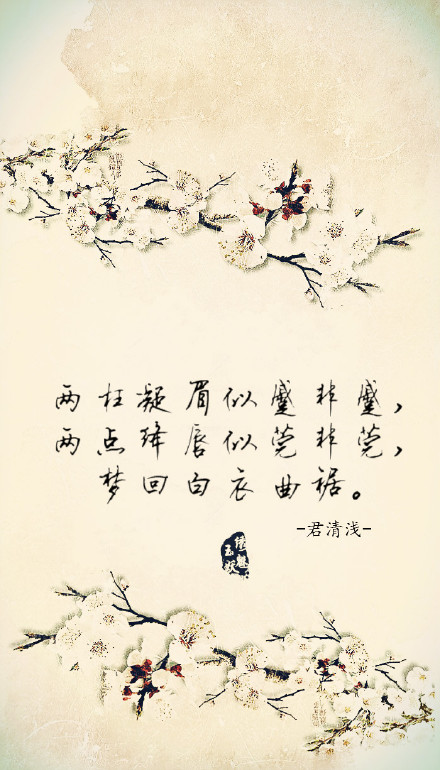 两枉凝眉似蹙非蹙，
两点绛唇似莞非莞，
梦回白衣曲裾。
-君清浅-